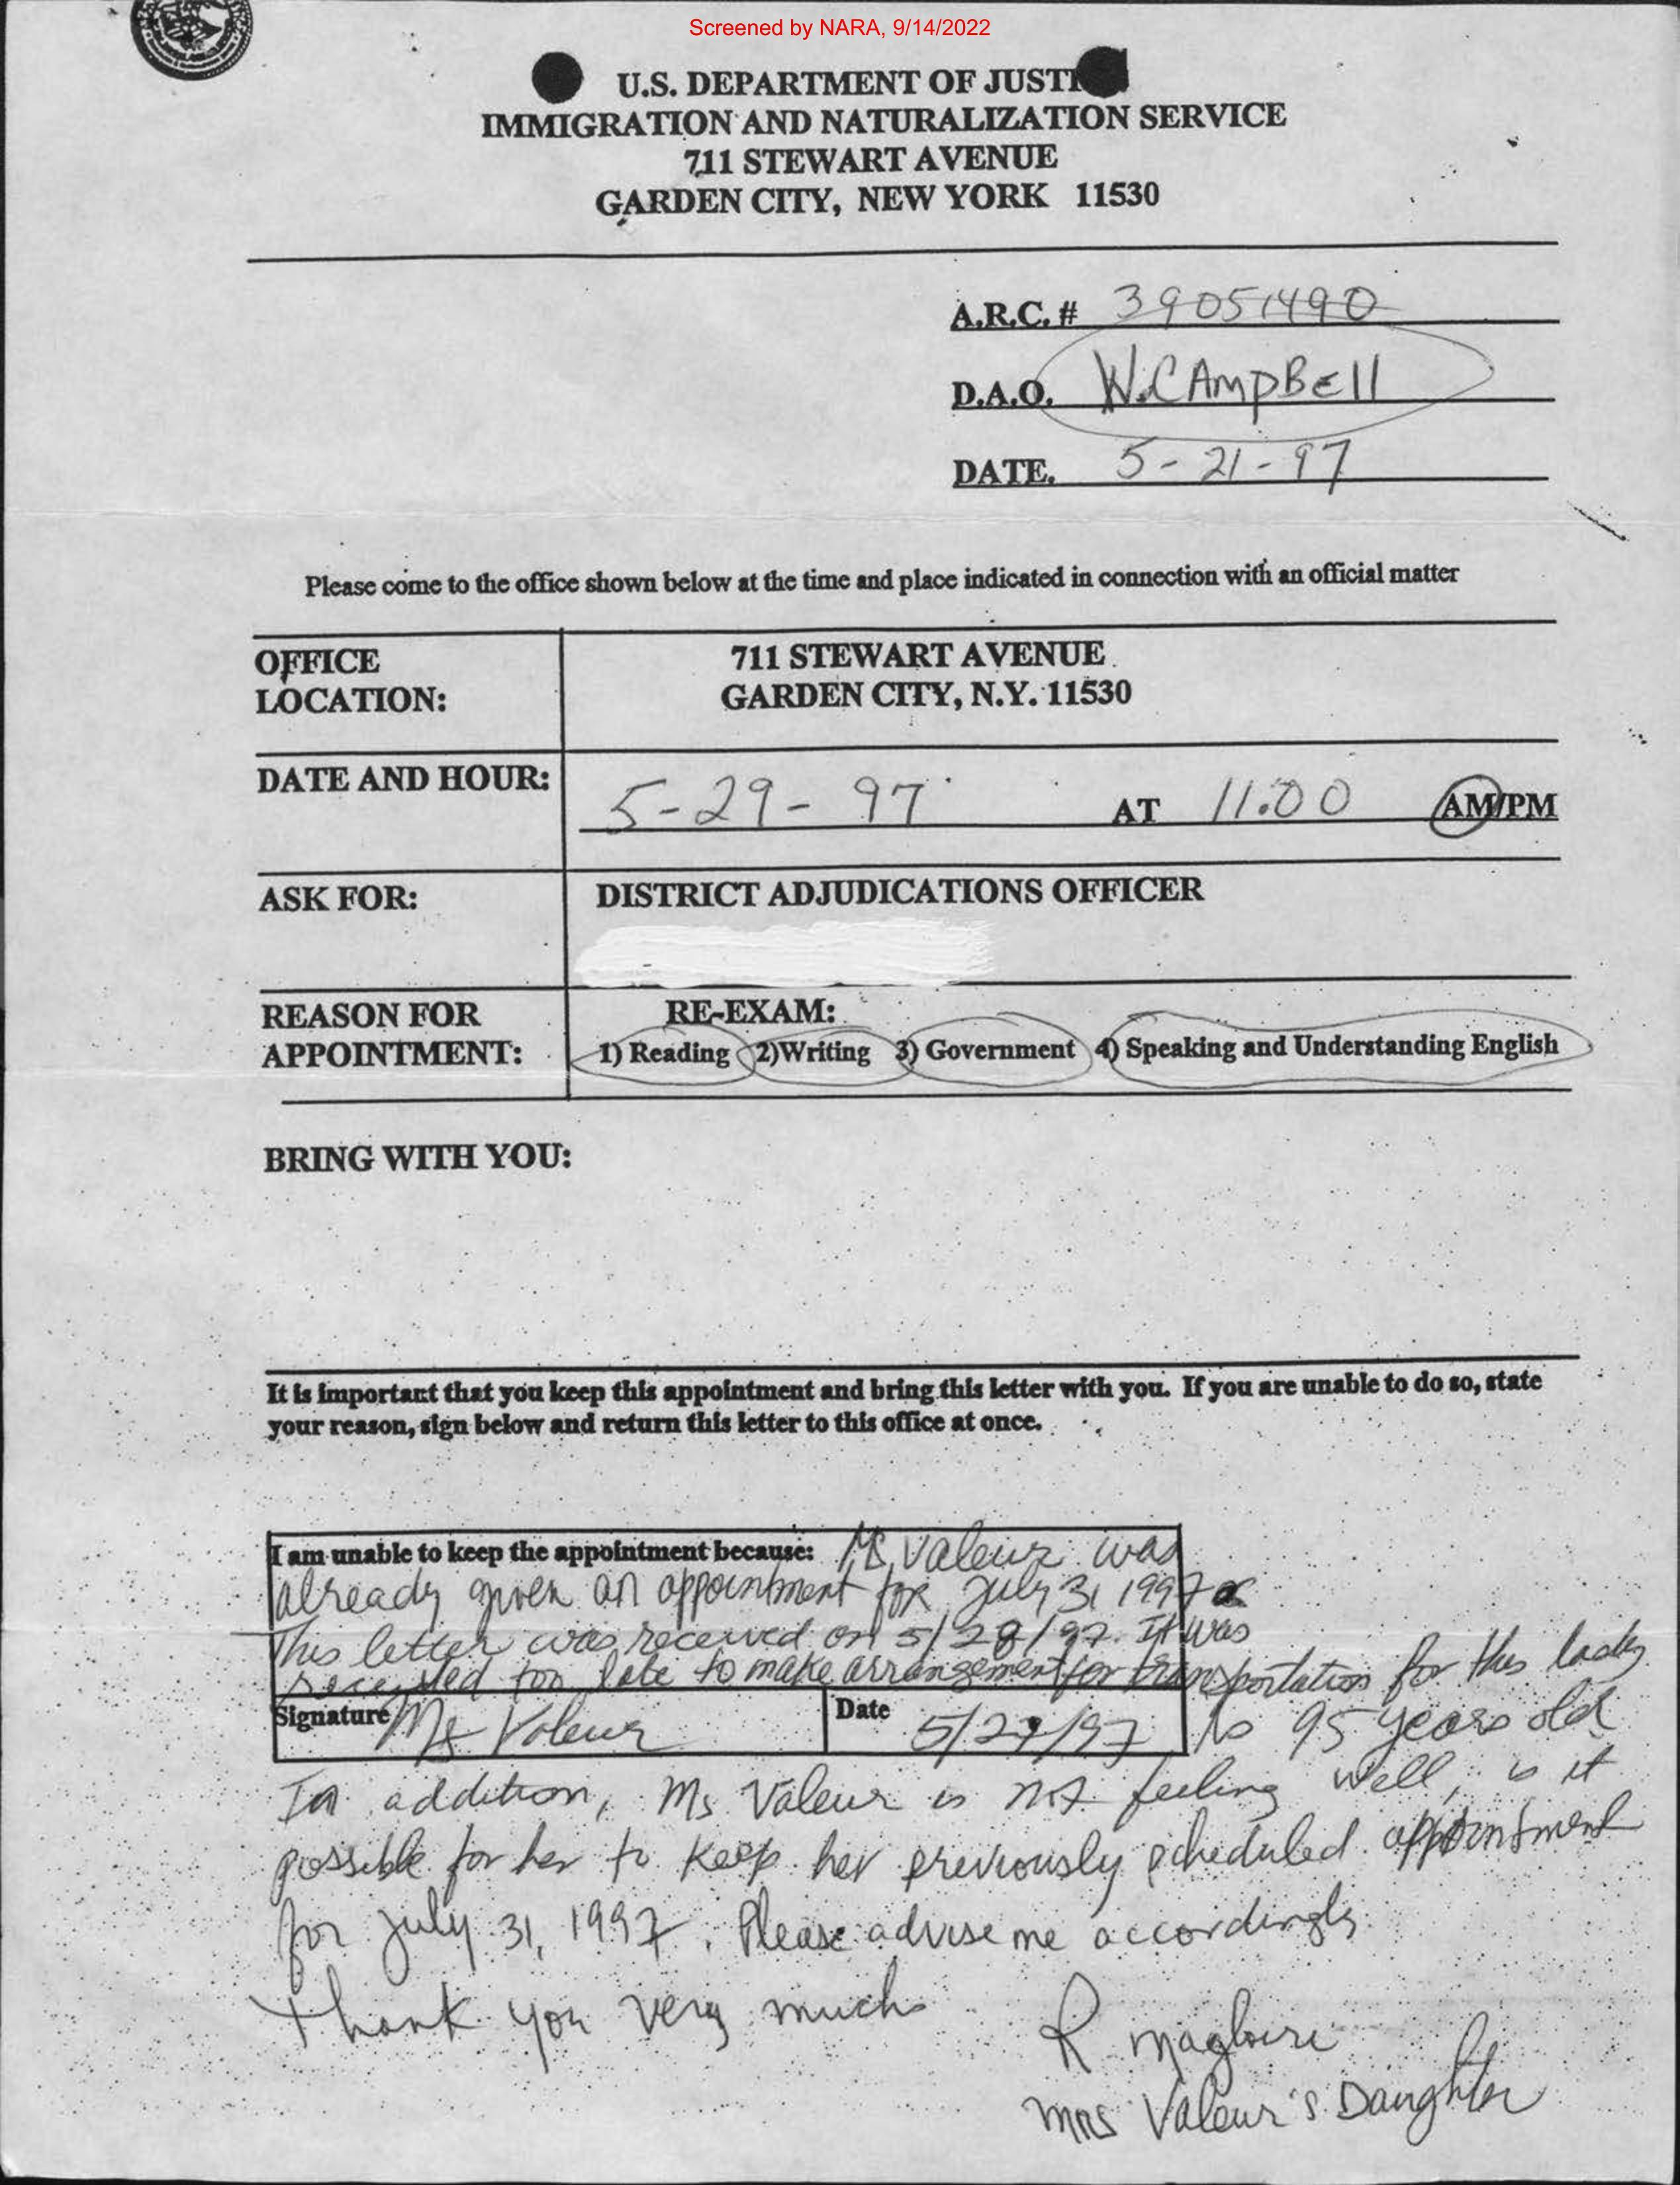 Screened by NARA, 9/14/2022
U.S. DEPARTMENT OF JUSTI
IMMIGRATION AND NATURALIZATION SERVICE
711 STEWART AVENUE
GARDEN CITY, NEW YORK 11530
A.R.C. # 39051490
D.A.O. W. CAMPBELL
DATE. 5-21-97
Please come to the office shown below at the time and place indicated in connection with an official matter
OFFICE LOCATION:
711 STEWART AVENUE
GARDEN CITY, N.Y. 11530
DATE AND HOUR: 5-29-97 AT 11:00 AM/PM
ASK FOR: DISTRICT ADJUDICATIONS OFFICER
REASON FOR APPOINTMENT:
RE-EXAM:
1) Reading 2)Writing 3) Government 4) Speaking and Understanding English
BRING WITH YOU:
It is important that you keep this appointment and bring this letter with you. If you are unable to do so, state
your reason, sign below and return this letter to this office at once.
I am unable to keep the appointment because: Ms Valeur was
already given an appointment for July 31 1997
This letter was received on 5/28/97. It was
received too late to make arrangement for transportation for this lady
Signature Ms Valeur Date 5/29/97 is 95 years old
In addition, Ms Valeur is not feeling well, is it
possible for her to keep her previously scheduled appointment
for July 31, 1997. Please advise me accordingly
Thank you very much
R Magloire
Mrs Valeur's Daughter